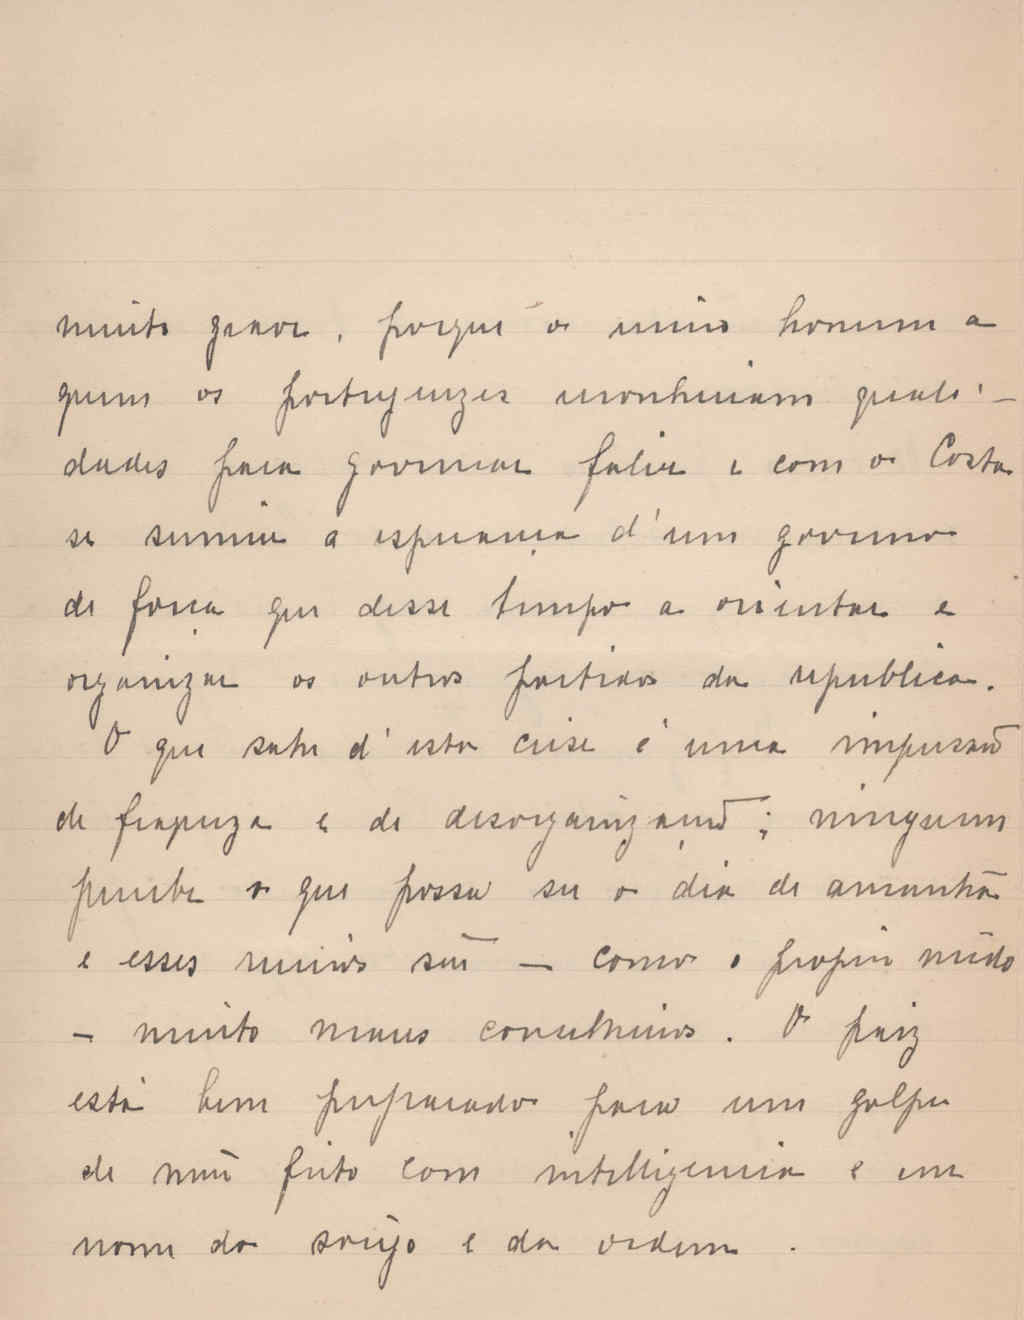 muito grave, porque o unico homem a
quem os portuguezes reconheciam quali-
dades para governar faliu e com o Costa
se sumiu a esperança d'um governo
de força que desse tempo a orientar e
organizar os outros partidos da republica.
O que sahe d'esta crise é uma impressão
de fraqueza e de desorganização; ninguem
percebe o que possa ser o dia de amanhã
e esses receios são — como o proprio mêdo
— muito maus conselheiros. O paiz
está bem preparado para um golpe
de mão feito com intelligencia e em
nome do socêgo e da ordem.